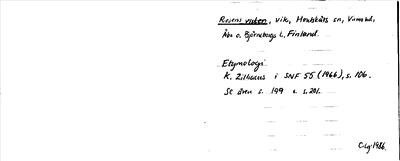 Rosens viken, vik, Houtskärs sn, Vumo hd,
Åbo o. Björneborgs l., Finland.
Etymologi:
K. Zilliacus i SNF 55 (1966), s. 106.
St Bren s. 199 s. 201.